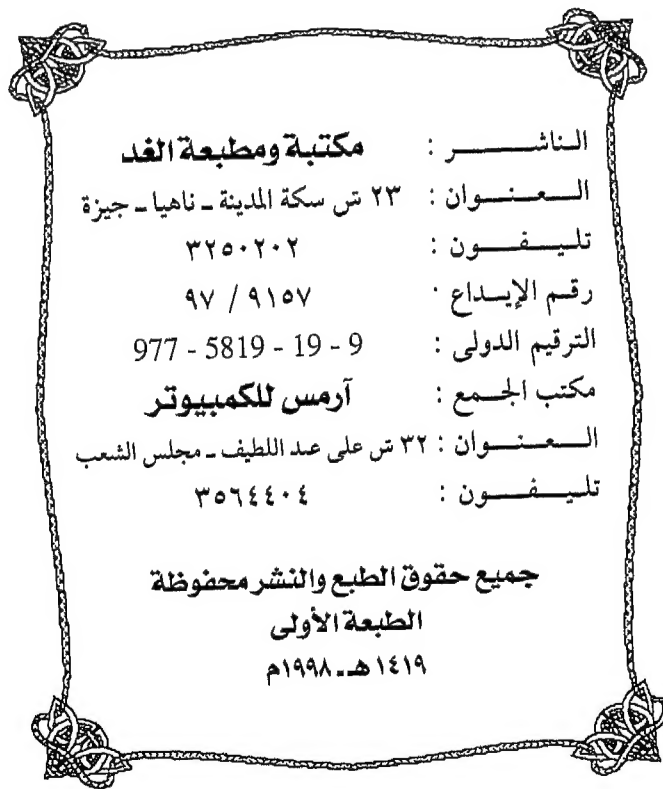 الناشر : مكتبة ومطبعة الغد
العنوان : ٢٣ ش سكة المدينة ـ ناهيا ـ جيزة
تليفون : ٣٢٥٠٢٠٢
رقم الإيداع : ٩١٥٧ / ٩٧
الترقيم الدولى : 977 - 5819 - 19 - 9
مكتب الجمع : آرمس للكمبيوتر
العنوان : ٣٢ ش على عبد اللطيف ـ مجلس الشعب
تليفون : ٣٥٦٤٤٠٤
جميع حقوق الطبع والنشر محفوظة
الطبعة الأولى
١٤١٩هـ ـ ١٩٩٨م